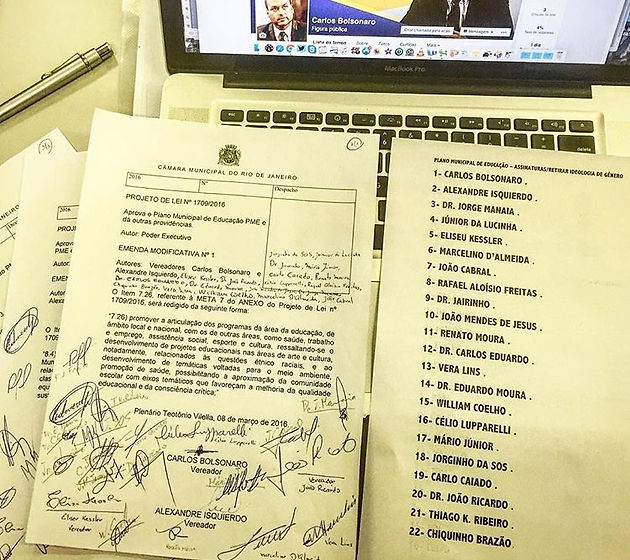 Carlos Bolsonaro
Figura pública
Linha do tempo Sobre Fotos Mais
MacBook Pro
delete
CÂMARA MUNICIPAL DO RIO DE JANEIRO
2016 Nº Despacho
PROJETO DE LEI Nº 1709/2016
Aprova o Plano Municipal de Educação PME e
dá outras providências.
Autor: Poder Executivo
EMENDA MODIFICATIVA Nº 1
Autores: Vereadores Carlos Bolsonaro e
Alexandre Isquierdo,
O Item 7.26, referente à META 7 do ANEXO do Projeto de Lei nº
1709/2016, será redigido da seguinte forma:
"7.26) promover a articulação dos programas da área da educação, de
âmbito local e nacional, com os de outras áreas, como saúde, trabalho
e emprego, assistência social, esporte e cultura, ressaltando-se o
desenvolvimento de projetos educacionais nas áreas de arte e cultura,
notadamente, relacionados às questões étnico raciais, e ao
desenvolvimento de temáticas voltadas para o meio ambiente,
promoção de saúde, possibilitando a aproximação da comunidade
escolar com eixos temáticos que favoreçam a melhoria da qualidade
educacional e da consciência crítica;"
Plenário Teotônio Vilella, 08 de março de 2016
CARLOS BOLSONARO
Vereador
Vereador
João Ricardo
Eliseu Kessler
Vereador
ALEXANDRE ISQUIERDO
Vereador
Vera Lins
PLANO MUNICIPAL DE EDUCAÇÃO – ASSINATURAS/RETIRAR IDEOLOGIA DE GÊNERO
1- CARLOS BOLSONARO .
2- ALEXANDRE ISQUIERDO .
3- DR. JORGE MANAIA .
4- JÚNIOR DA LUCINHA .
5- ELISEU KESSLER .
6- MARCELINO D'ALMEIDA .
7- JOÃO CABRAL .
8- RAFAEL ALOÍSIO FREITAS .
9- DR. JAIRINHO .
10- JOÃO MENDES DE JESUS .
11- RENATO MOURA .
12- DR. CARLOS EDUARDO .
13- VERA LINS .
14- DR. EDUARDO MOURA .
15- WILLIAM COELHO .
16- CÉLIO LUPPARELLI .
17- MÁRIO JÚNIOR .
18- JORGINHO DA SOS .
19- CARLO CAIADO .
20- DR. JOÃO RICARDO .
21- THIAGO K. RIBEIRO .
22- CHIQUINHO BRAZÃO .